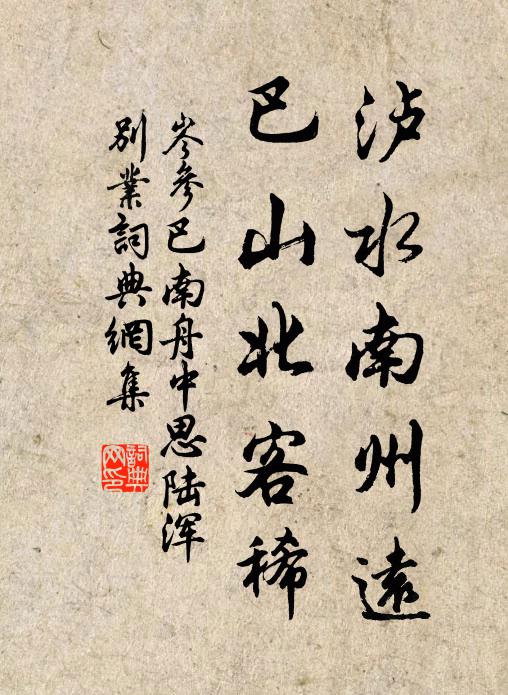 泸水南州遠
巴山北客稀
岑参巴南舟中思陆浑
別業詞典網集
詞典网印